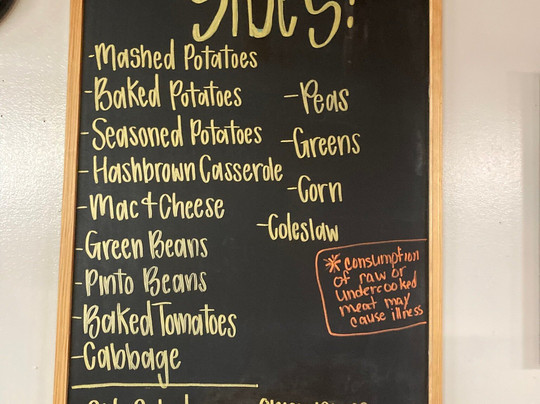 Sides:
-Mashed Potatoes
-Baked Potatoes
-Seasoned Potatoes
-Hashbrown Casserole
-Mac+Cheese
-Green Beans
-Pinto Beans
-Baked Tomatoes
-Cabbage
-Peas
-Greens
-Corn
-Coleslaw
*consumption
of raw or
undercooked
meat may
cause illness